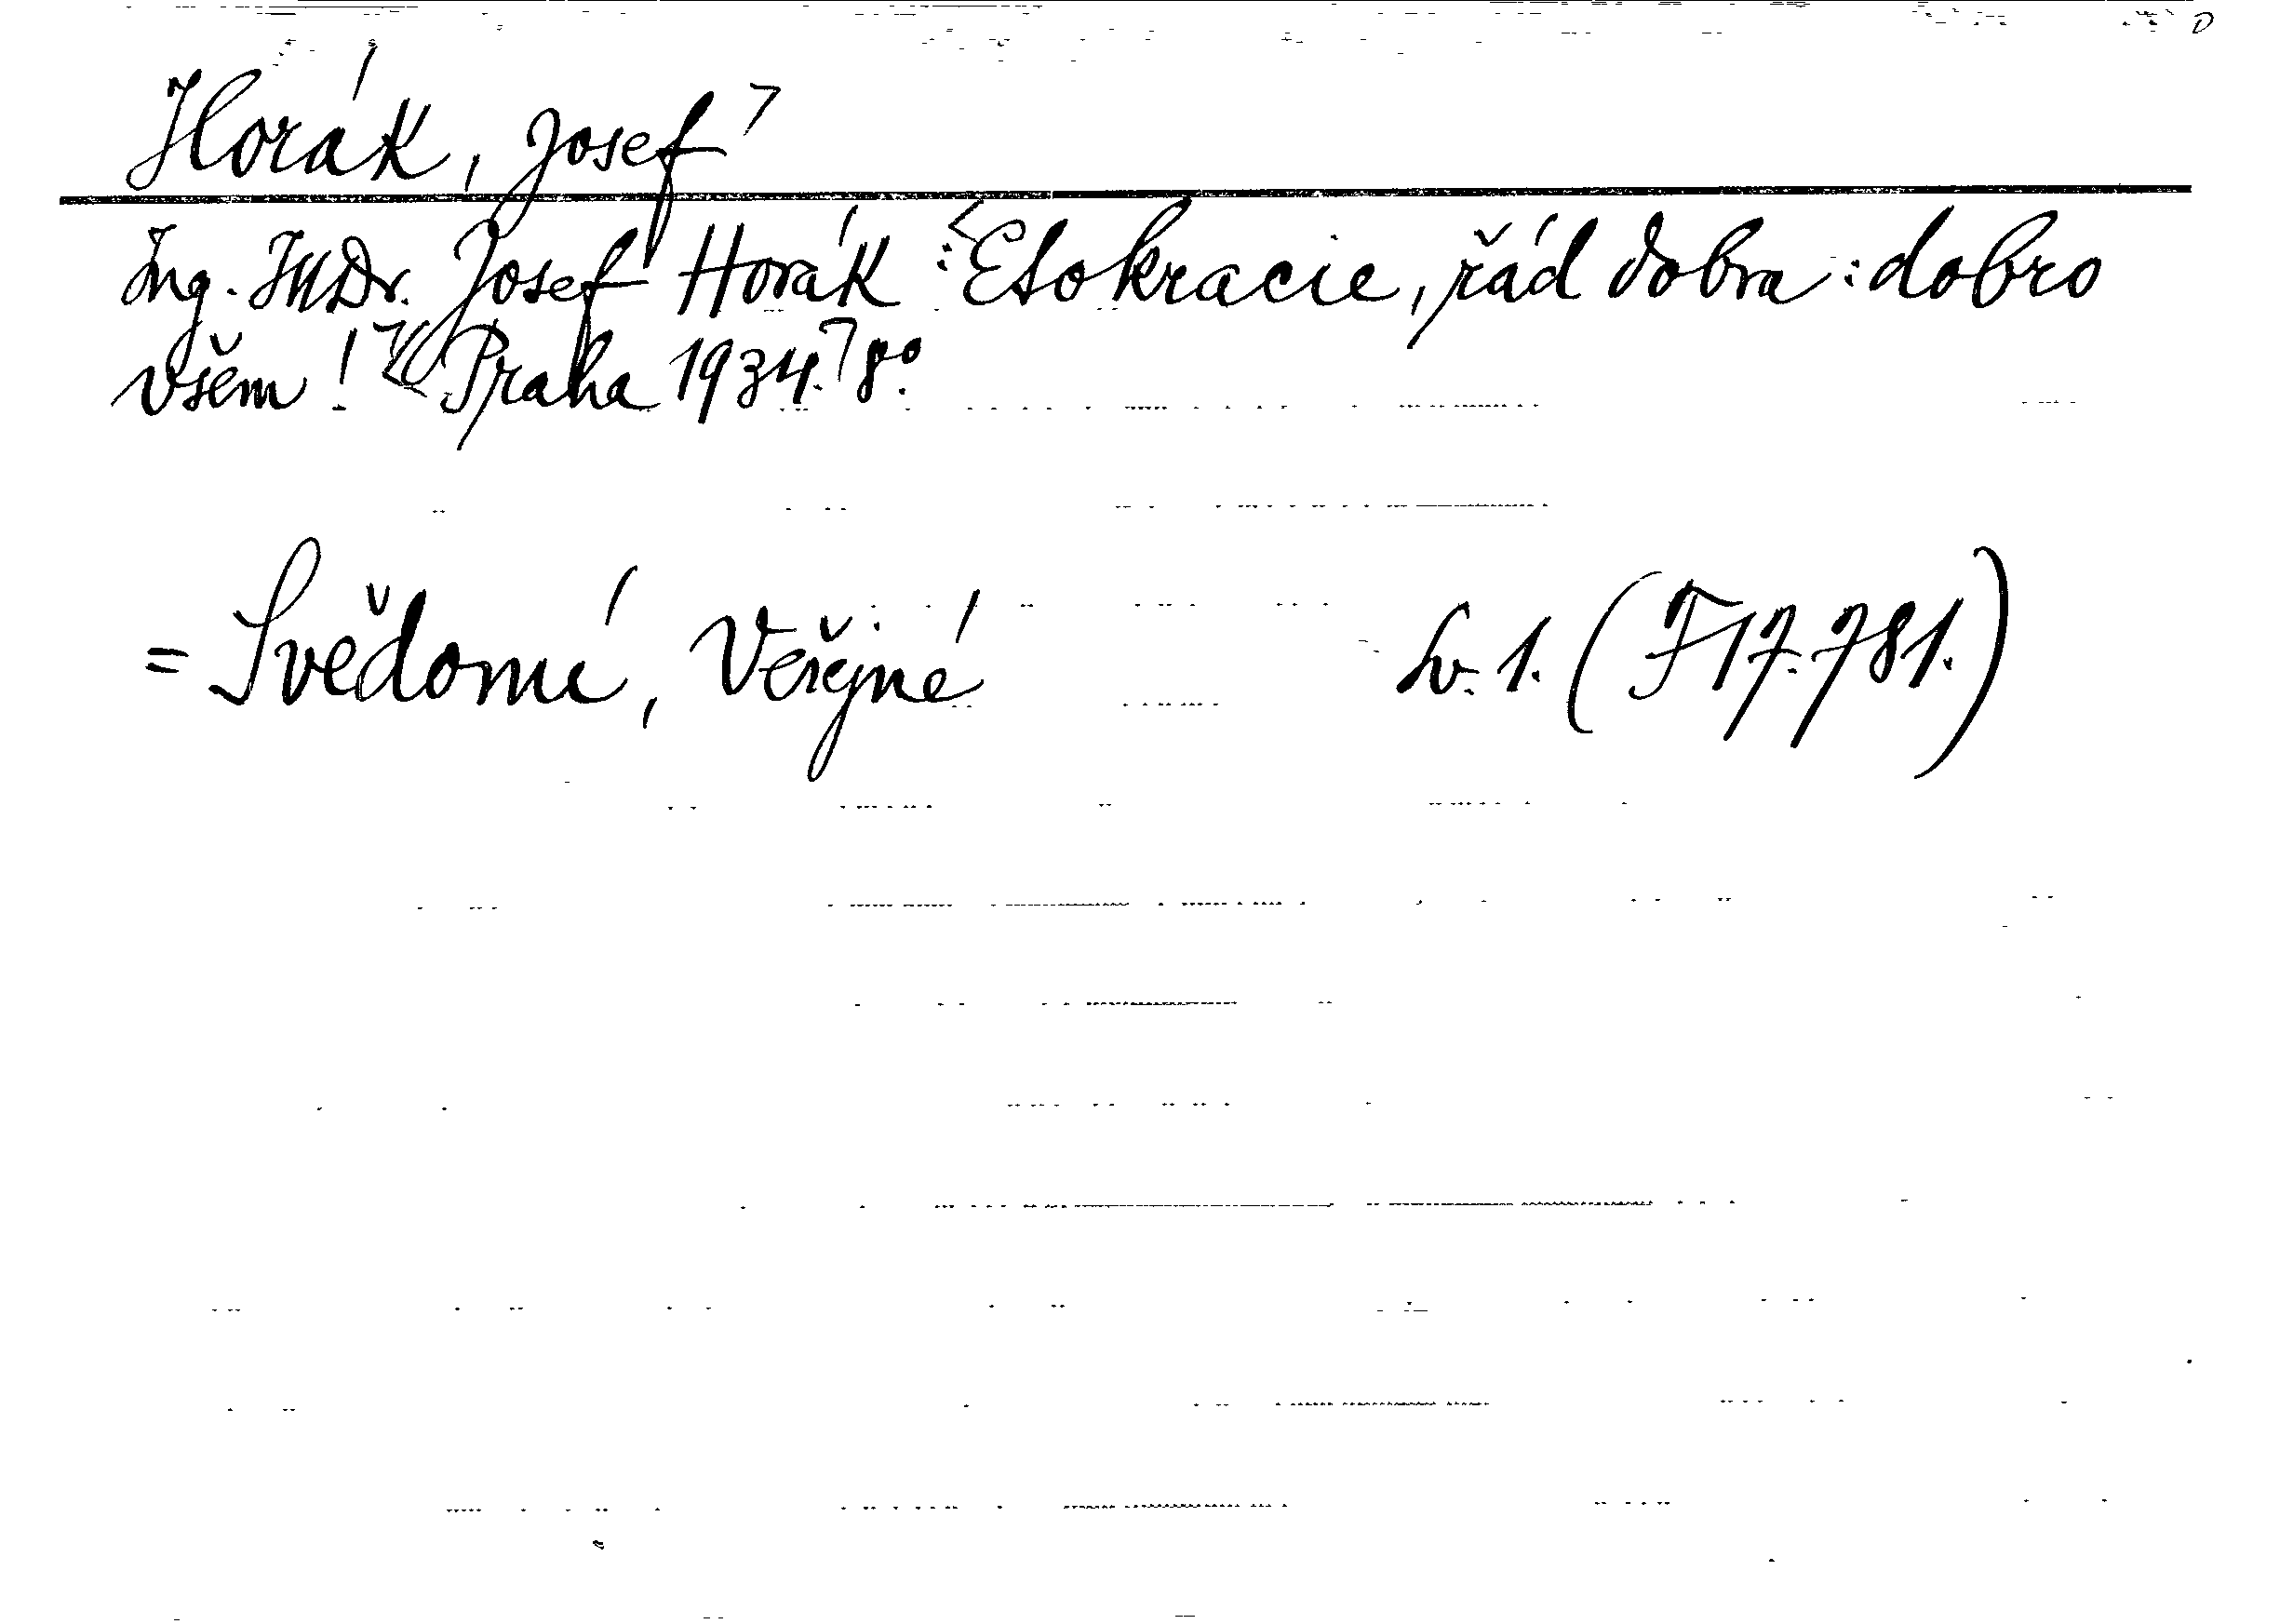 Horák, Josef
Ing. JUDr. Josef Horák: Etokracie, řád dobra: dobro
všem! Praha 1934. 8°.
= Svědomí, Veřejné Sv. 1. (F 17.781.)